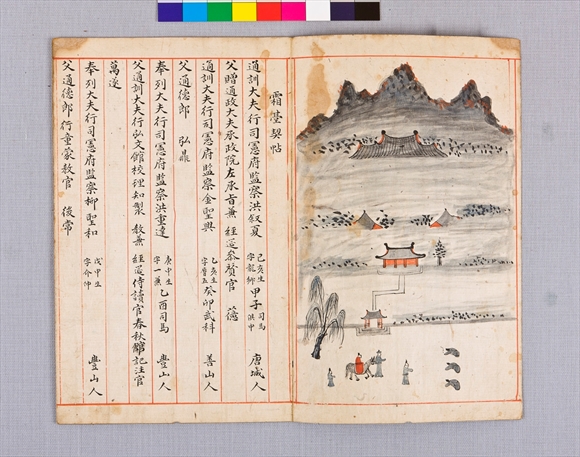 霜臺契帖
通訓大夫行司憲府監察洪叙夏 己亥生 字龍卿 甲子 司馬 洪申 唐城人
父贈通政大夫承政院左承旨兼 經筵參贊官 薳
通訓大夫行司憲府監察金聖興 乙亥生 癸卯武科 善山人
父通德郎 弘鼎
奉列大夫行司憲府監察洪重達 庚申生 字一兼 乙酉司馬 豊山人
父通訓大夫行弘文館校理知製 敎兼 經筵侍讀官春秋館記注官
萬遂
奉列大夫行司憲府監察柳聖和 戊申生 字介仲 豊山人
父通德郎行童蒙敎官 後常